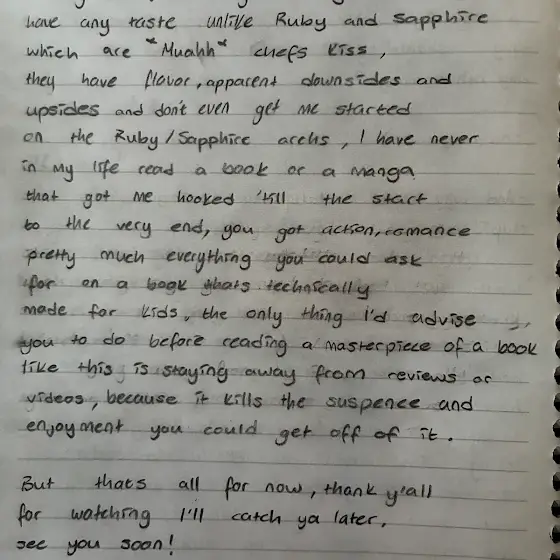 have any taste unlike Ruby and Sapphire
which are *Muahh* chefs kiss,
they have flavor, apparent downsides and
upsides and don't even get me started
on the Ruby/Sapphire archs, I have never
in my life read a book or a manga
that got me hooked 'till the start
to the very end, you got action, romance
pretty much everything you could ask
for on a book thats technically
made for kids, the only thing I'd advise
you to do before reading a masterpiece of a book
like this is staying away from reviews or
videos, because it kills the suspence and
enjoyment you could get off of it.
But thats all for now, thank y'all
for watching I'll catch ya later,
see you soon!